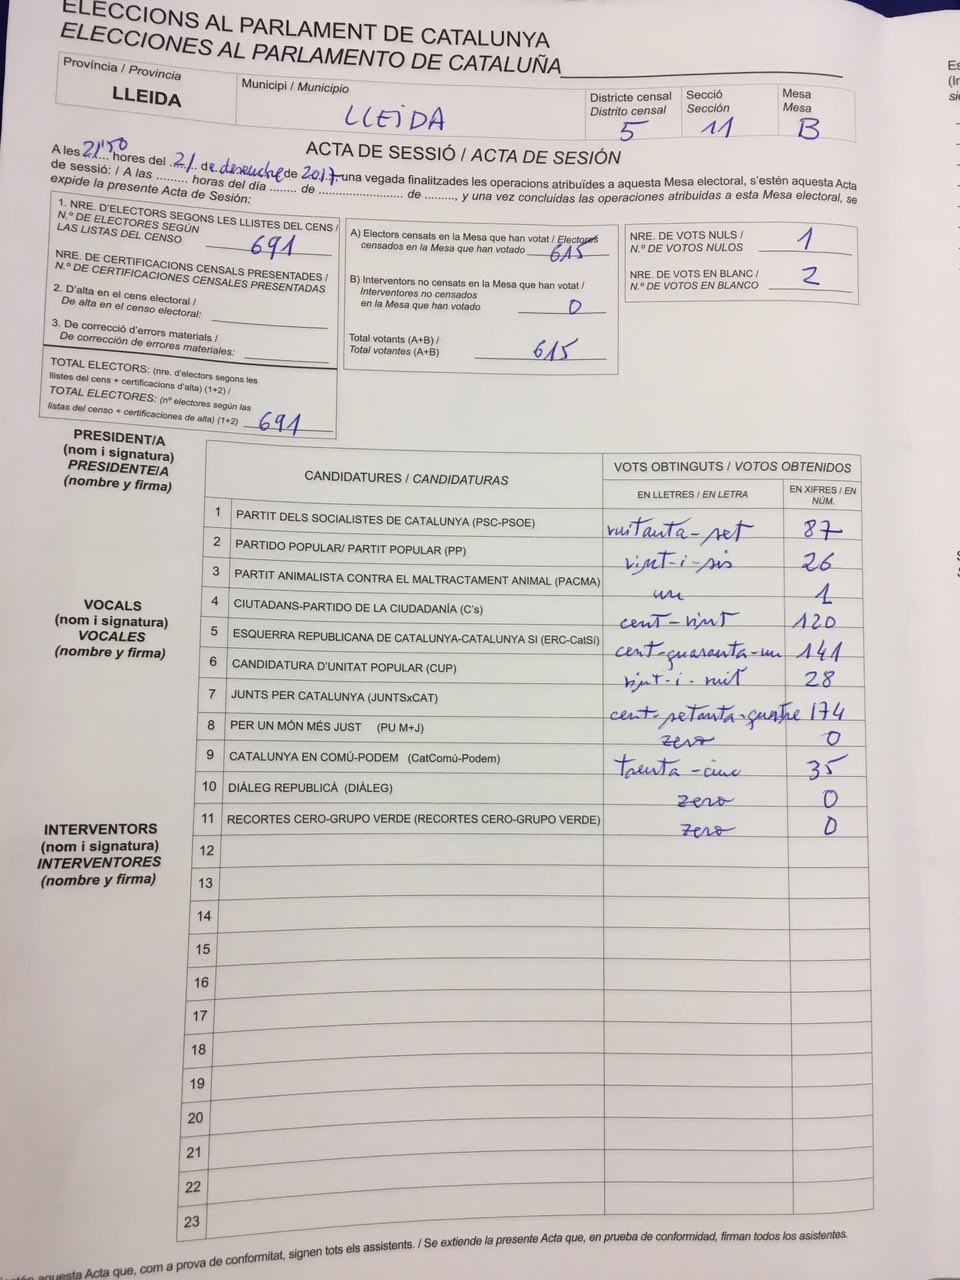 ELECCIONS AL PARLAMENT DE CATALUNYA
ELECCIONES AL PARLAMENTO DE CATALUÑA
Província / Provincia
LLEIDA
Municipi / Municipio
LLEIDA
Districte censal
Distrito censal
5
Secció
Sección
11
Mesa
Mesa
B
ACTA DE SESSIÓ / ACTA DE SESIÓN
A les 21'50 hores del 21 de desembre de 2017 una vegada finalitzades les operacions atribuïdes a aquesta Mesa electoral, s'estén aquesta Acta
de sessió: / A las ......... horas del día ........ de ..................... de ........., y una vez concluidas las operaciones atribuidas a esta Mesa electoral, se
expide la presente Acta de Sesión:
1. NRE. D'ELECTORS SEGONS LES LLISTES DEL CENS /
N.º DE ELECTORES SEGÚN
LAS LISTAS DEL CENSO 691
NRE. DE CERTIFICACIONS CENSALS PRESENTADES /
N.º DE CERTIFICACIONES CENSALES PRESENTADAS
2. D'alta en el cens electoral /
De alta en el censo electoral:
3. De correcció d'errors materials /
De corrección de errores materiales:
TOTAL ELECTORS: (nre. d'electors segons les
llistes del cens + certificacions d'alta) (1+2) /
TOTAL ELECTORES: (nº electores según las
listas del censo + certificaciones de alta) (1+2) 691
A) Electors censats en la Mesa que han votat / Electores
censados en la Mesa que han votado 615
B) Interventors no censats en la Mesa que han votat /
Interventores no censados
en la Mesa que han votado 0
Total votants (A+B) /
Total votantes (A+B) 615
NRE. DE VOTS NULS /
N.º DE VOTOS NULOS 1
NRE. DE VOTS EN BLANC /
N.º DE VOTOS EN BLANCO 2
PRESIDENT/A
(nom i signatura)
PRESIDENTE/A
(nombre y firma)
VOCALS
(nom i signatura)
VOCALES
(nombre y firma)
INTERVENTORS
(nom i signatura)
INTERVENTORES
(nombre y firma)
CANDIDATURES / CANDIDATURAS
VOTS OBTINGUTS / VOTOS OBTENIDOS
EN LLETRES / EN LETRA
EN XIFRES / EN
NÚM.
1 PARTIT DELS SOCIALISTES DE CATALUNYA (PSC-PSOE) vuitanta-set 87
2 PARTIDO POPULAR/ PARTIT POPULAR (PP) vint-i-sis 26
3 PARTIT ANIMALISTA CONTRA EL MALTRACTAMENT ANIMAL (PACMA) un 1
4 CIUTADANS-PARTIDO DE LA CIUDADANÍA (C's) cent-vint 120
5 ESQUERRA REPUBLICANA DE CATALUNYA-CATALUNYA SI (ERC-CatSí) cent-quaranta-un 141
6 CANDIDATURA D'UNITAT POPULAR (CUP) vint-i-vuit 28
7 JUNTS PER CATALUNYA (JUNTSxCAT) cent-setanta-quatre 174
8 PER UN MÓN MÉS JUST (PU M+J) zero 0
9 CATALUNYA EN COMÚ-PODEM (CatComú-Podem) trenta-cinc 35
10 DIÀLEG REPUBLICÀ (DIÀLEG) zero 0
11 RECORTES CERO-GRUPO VERDE (RECORTES CERO-GRUPO VERDE) zero 0
12
13
14
15
16
17
18
19
20
21
22
23
aquesta Acta que, com a prova de conformitat, signen tots els assistents. / Se extiende la presente Acta que, en prueba de conformidad, firman todos los asistentes.